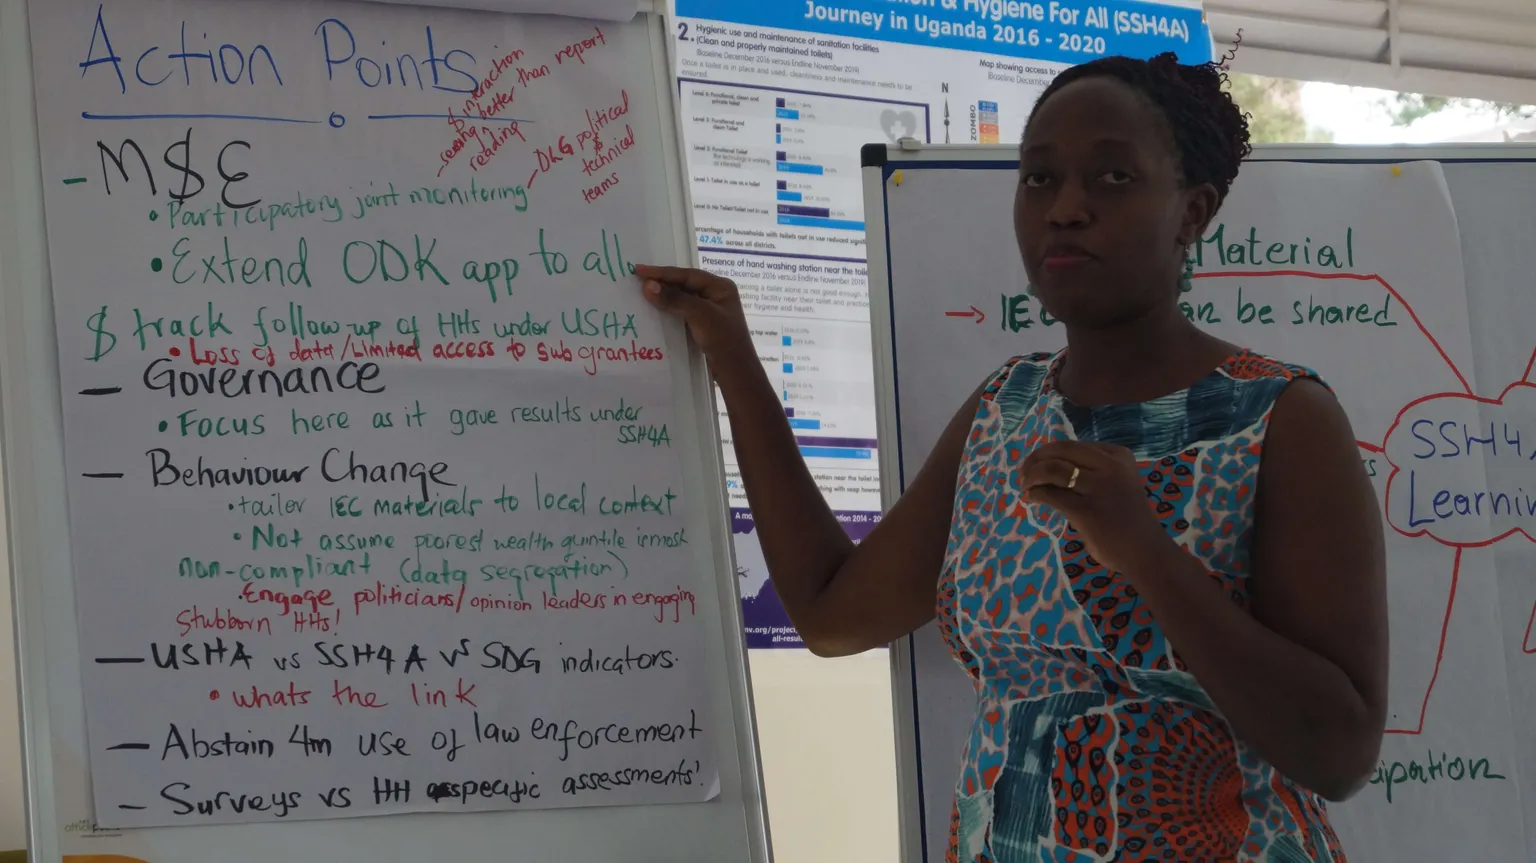 Action Points
- M$E
$ interaction
better than report
- seeing
reading
• Participatory joint monitoring
- DLG political
$
technical
teams
• Extend ODK app to all
$ track follow-up of HHs under USHA
• Loss of data/Limited access to sub grantees
- Governance
• Focus here as it gave results under
SSH4A
- Behaviour Change
• tailer IEC Materials to local context
• Not assume poorest wealth quintile is most
non-compliant (data segregation)
• Engage politicians/opinion leaders in engaging
Stubborn HHs!
- USHA vs SSH4A vs SDG indicators.
• whats the link
- Abstain 4m use of law enforcement
- Surveys vs HH specific assessments!
& Hygiene For All (SSH4A)
Journey in Uganda 2016 - 2020
2. Hygienic use and maintenance of sanitation facilities
(Clean and properly maintained toilets)
Baseline December 2016 versus Endline November 2019)
Once a toilet is in place and used, cleanliness and maintenance needs to be
ensured.
Map showing access to
Baseline December
N
ZOMBO
47.4% across all districts.
Presence of hand washing station near the
Material
→ IEC can be shared
SSH4
Learnin
ipation